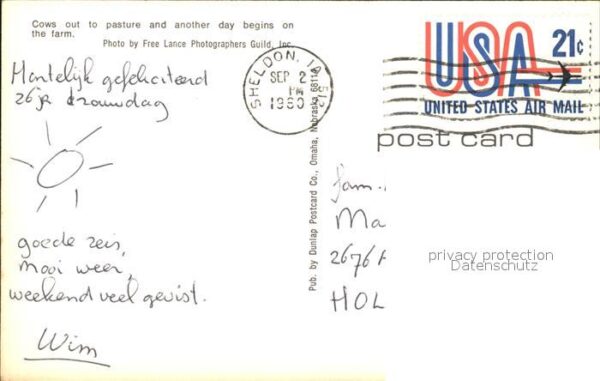 Cows out to pasture and another day begins on
the farm.
Photo by Free Lance Photographers Guild, Inc.
Hartelijk gefeliciteerd
26 je trouwdag
goede reis,
mooi weer,
weekend veel gevist.
Wim
Pub. by Dunlap Postcard Co., Omaha, Nebraska 68112
SHELDON, IA
SEP 2
PM
1980
512
USA 21c
UNITED STATES AIR MAIL
post card
fam.
Ma
2676
HOL
privacy protection
Datenschutz